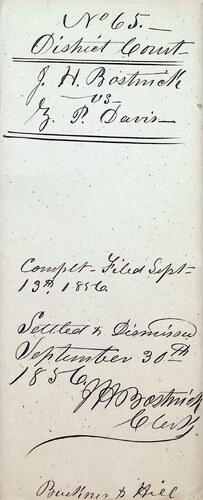 No 65. —
District Court
J. H. Bostwick
vs
Z. P. Davis —
Complt - Filed Sept -
13th 1856
Settled & Dismissed
September 30th
1856
JH Bostwick
Clerk
Buckner & Hill